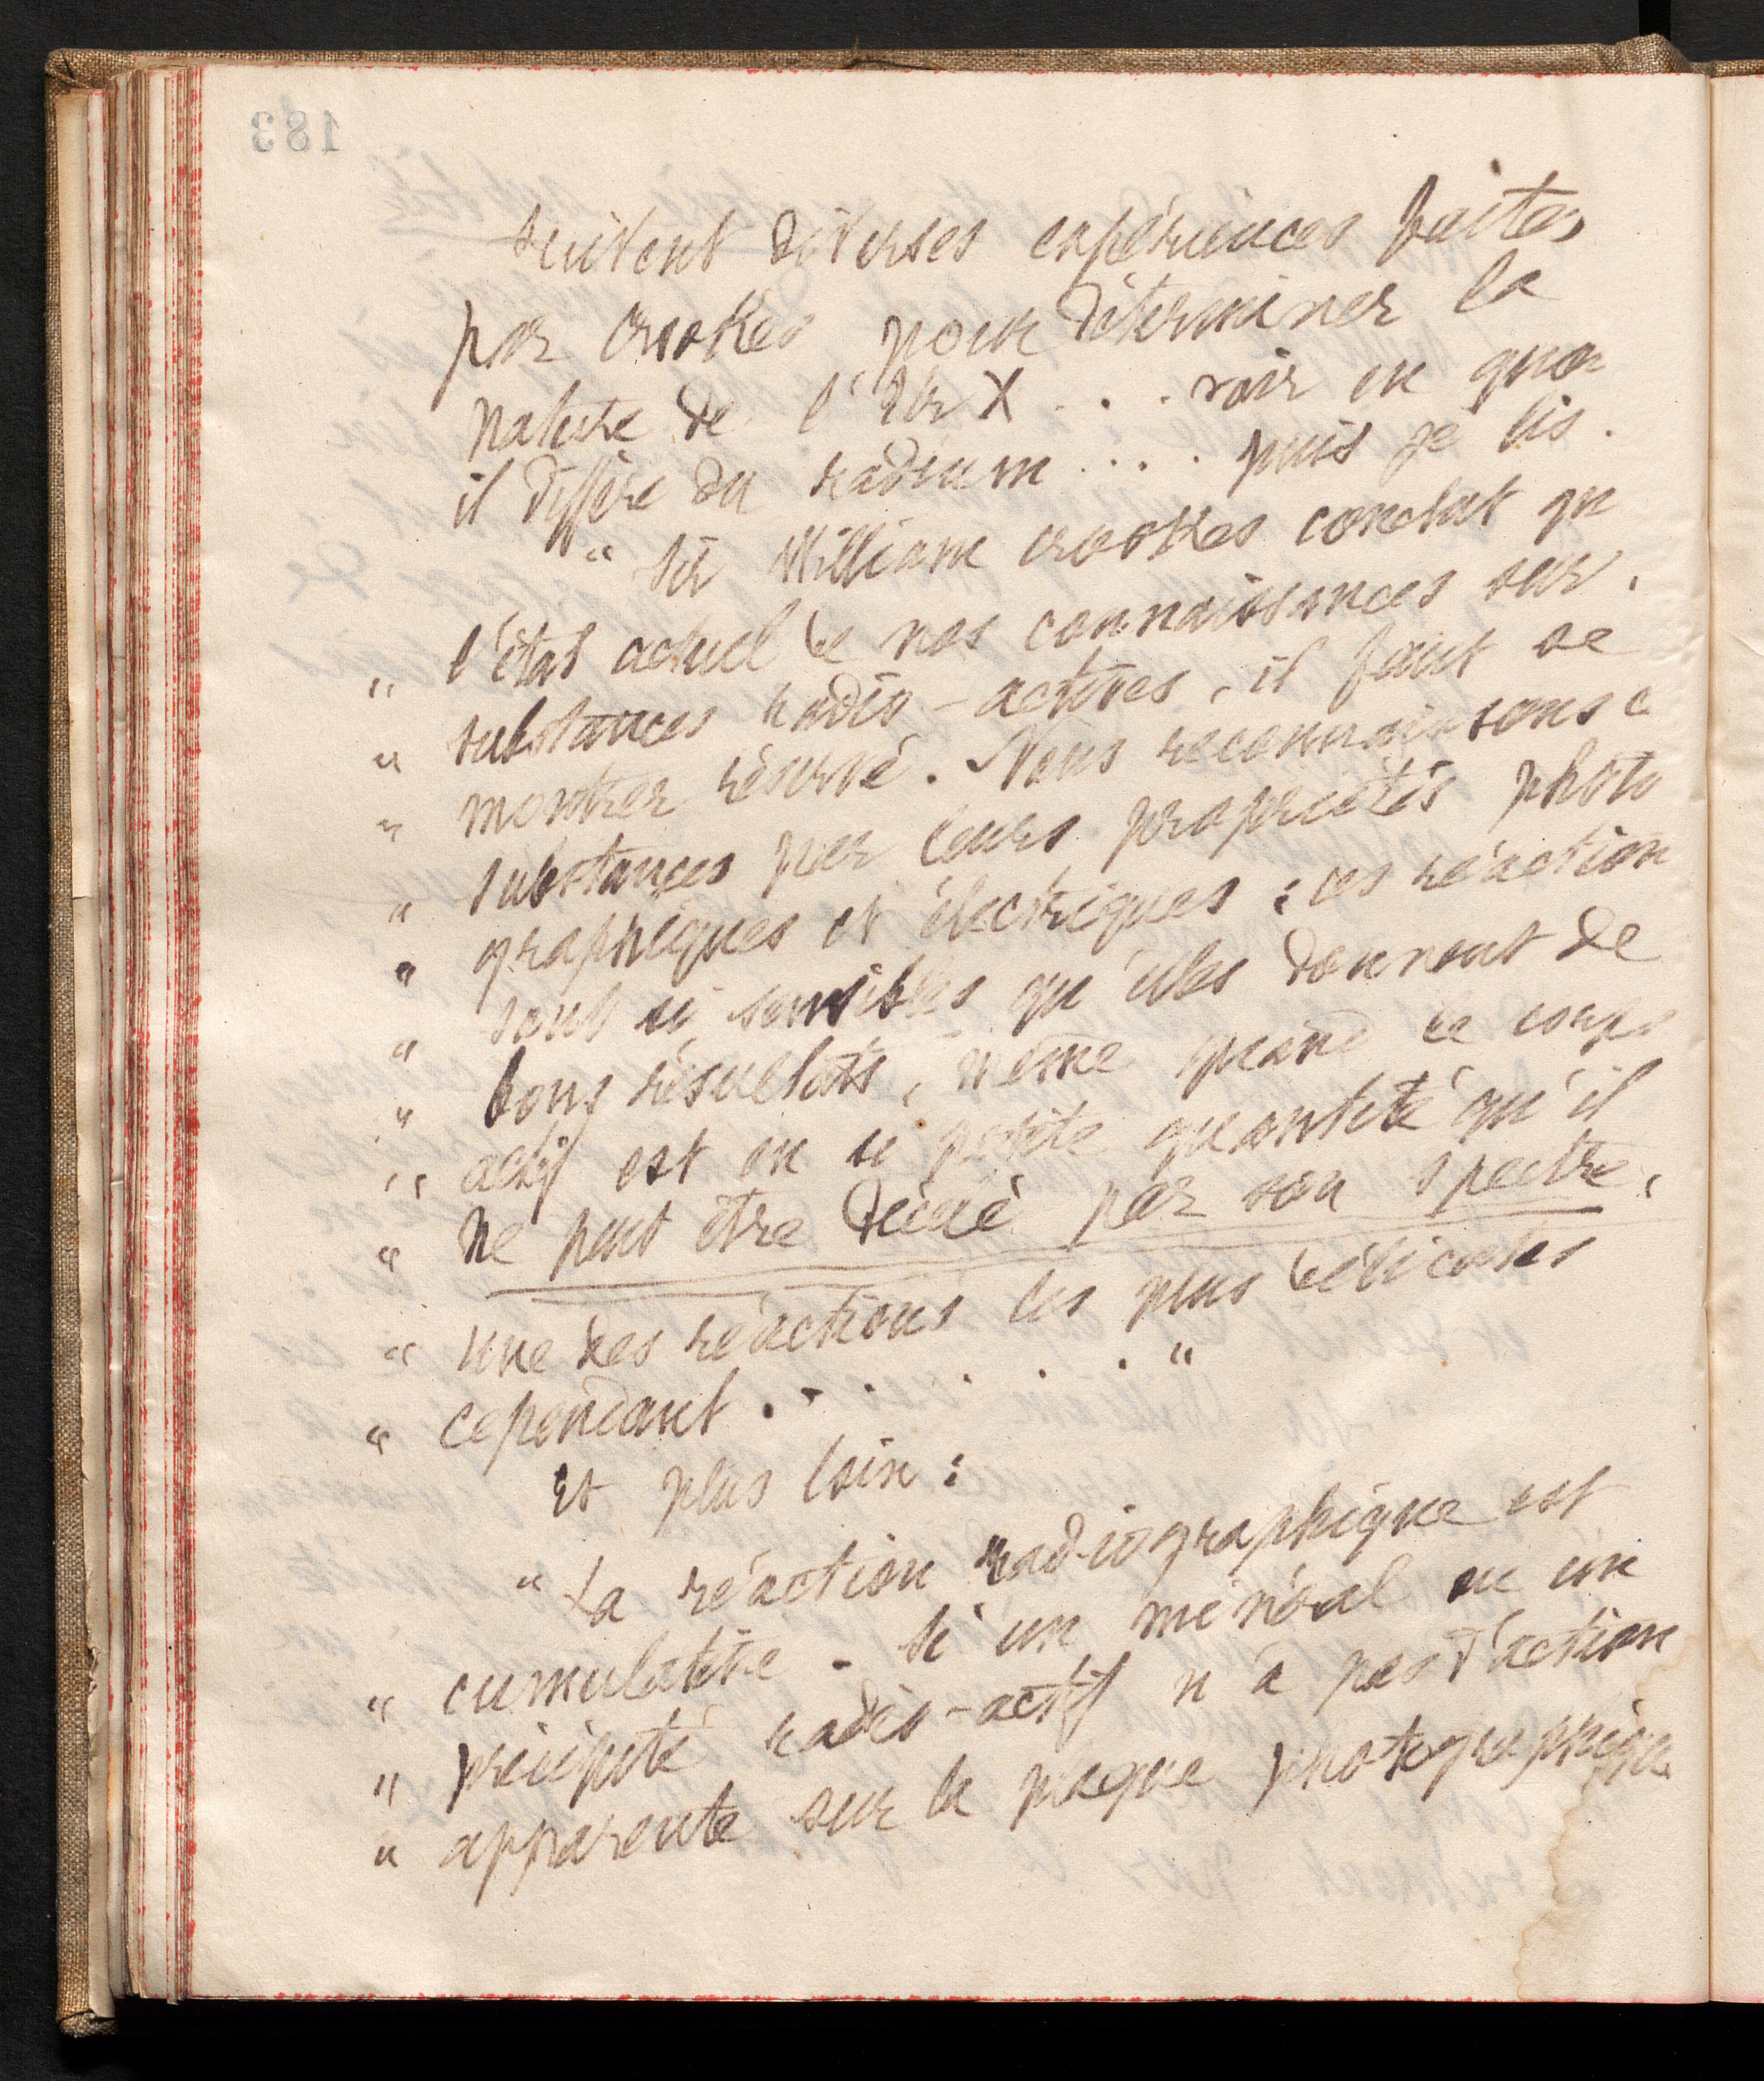 183
suivent diverses expériences faites
par Crookes pour déterminer la
nature de l'Ur X . . . voir en quoi
il diffère du radium . . . . puis je lis.
" Sir William Crookes conclut qu
" l'état actuel de nos connaissances sur.
" substances radio-actives, il faut se
" montrer réservé. Nous reconnaissons c
" substances par leurs propriétés photo
" graphiques et électriques : ces réaction
" sont si sensibles qu'elles donnent de
" bons résultats, même quand le corps
" actif est en si petite quantité qu'il
" ne peut être décélé par son spectre,
" une des réactions les plus délicates
" cependant . . . . . . . "
Et plus loin :
" La réaction radiographique est
" cumulative. Si un minéral ou un
" précipité radio-actif n'a pas d'action
" apparente sur la plaque photographique